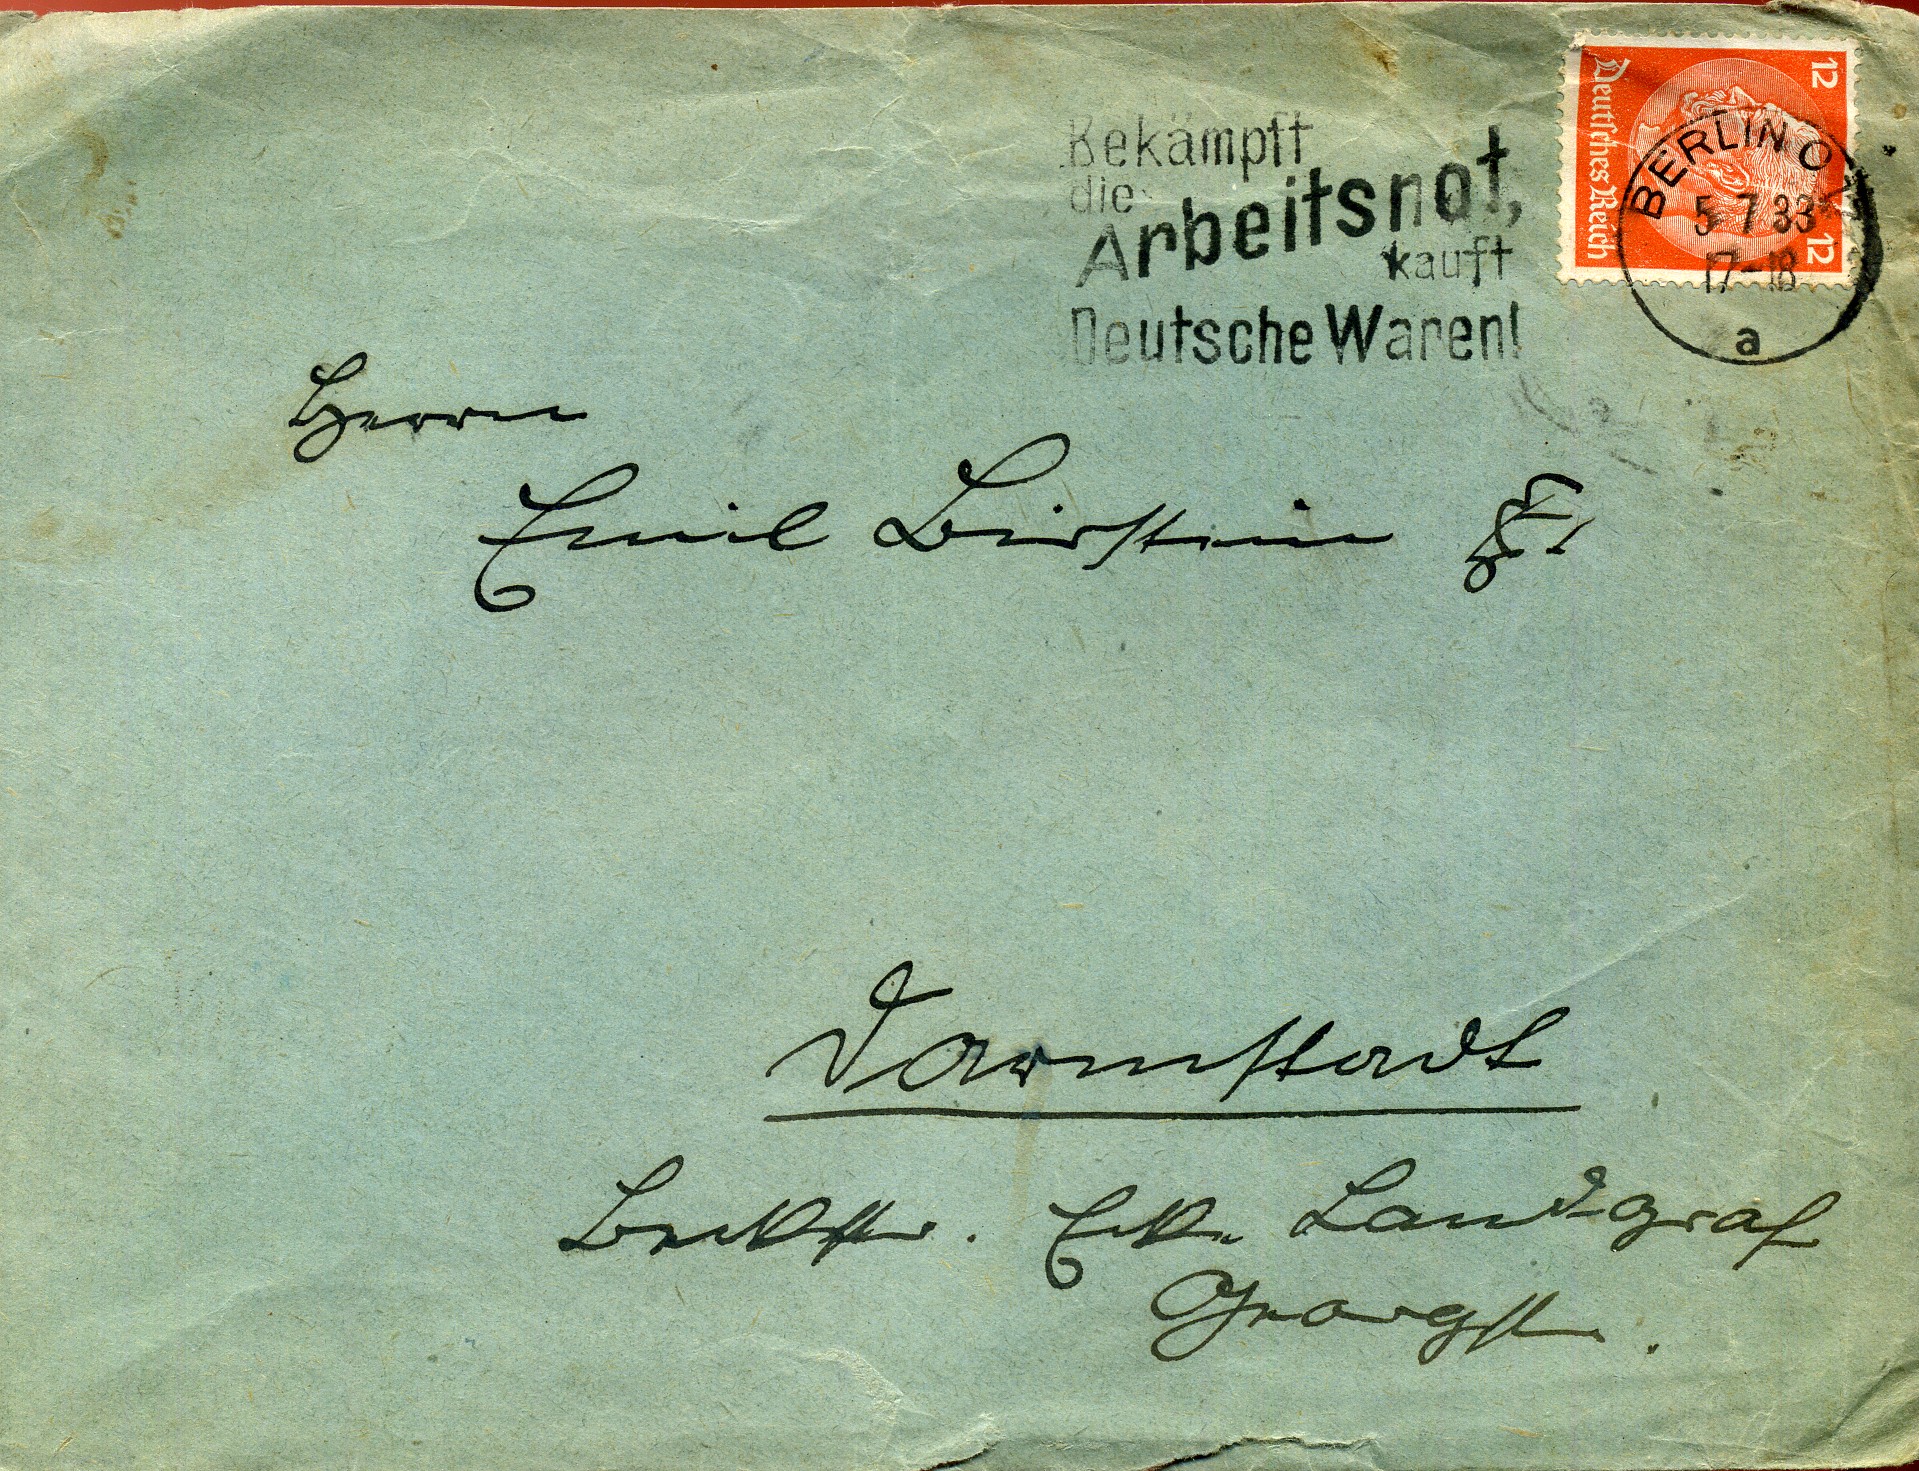 12
Deutsches Reich
12
BERLIN O
5 7 33
17-18
a
Bekämpft
die
Arbeitsnot,
kauft
Deutsche Waren!
Herrn
Emil Birstein
Darmstadt
Beckstr. Ecke Landgraf
Georgstr.